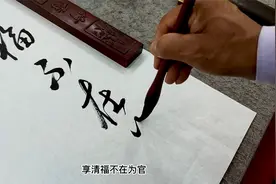 福不在
享清福不在为官